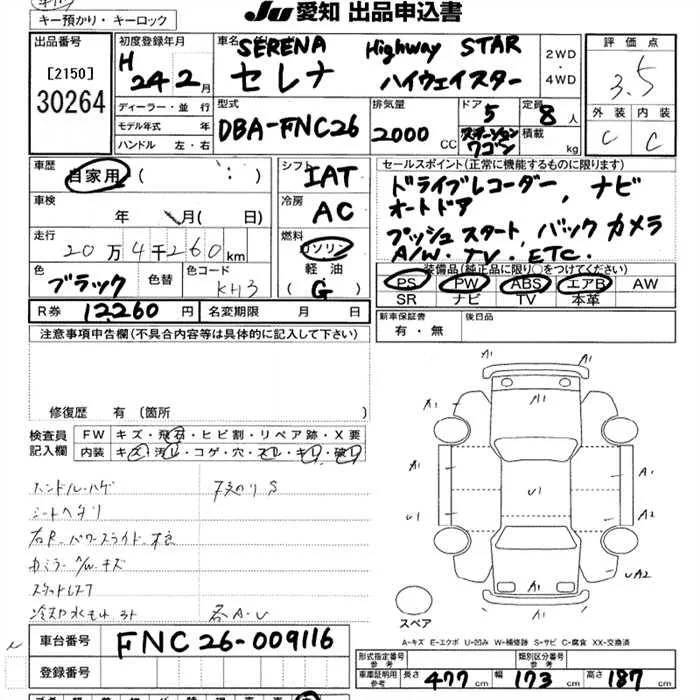 Ju 愛知 出品申込書
キー預かり・キーロック
出品番号
[2150]
30264
初度登録年月
H 24年2月
ディーラー・並行
モデル年式 年
ハンドル 左・右
車名
SERENA Highway STAR
セレナ ハイウェイスター
2WD
・
4WD
型式
DBA-FNC26
排気量
2000 CC
ドア
5
ステーションワゴン
定員
8 人
積載 kg
評価点
3.5
外装 内装
C C
車歴
自家用 ( : )
車検
年 月( 日)
走行
20万4千260km
色
ブラック
色替
色コード
KH3
シフト
IAT
冷房
AC
燃料
ガソリン
軽油
(G)
セールスポイント(正常に機能するものに限ります)
ドライブレコーダー, ナビ
オートドア
プッシュスタート, バックカメラ
A/W. TV. ETC.
装備品(純正品に限り○をつけてください)
PS PW ABS エアB AW
SR ナビ TV 本革
R券 12,260 円
名変期限 月 日
新車保証書
有・無
後日品
注意事項申告欄(不具合内容等は具体的に記入して下さい)
修復歴 有 [箇所 ]
検査員
記入欄
FW キズ・飛石・ヒビ割・リペア跡・X要
内装 キズ・汚レ・コゲ・穴・スレ・キレ・破レ
ハンドルハゲ
シートヘタリ
右R パワースライド不良
A/Wキズ
冷却水もれ
各A・U
A1
A1
A1
A1
A1
U1
U1
A2
A1
A1
UA2
スペア
A-キズ E-エクボ U-凹み W-補修跡 S-サビ C-腐食 XX-交換済
車台番号
FNC26-009116
登録番号
形式指定番号
参考
類別区分番号
参考
車庫証明用
参考
長さ 477 cm 幅 173 cm 高さ 187 cm